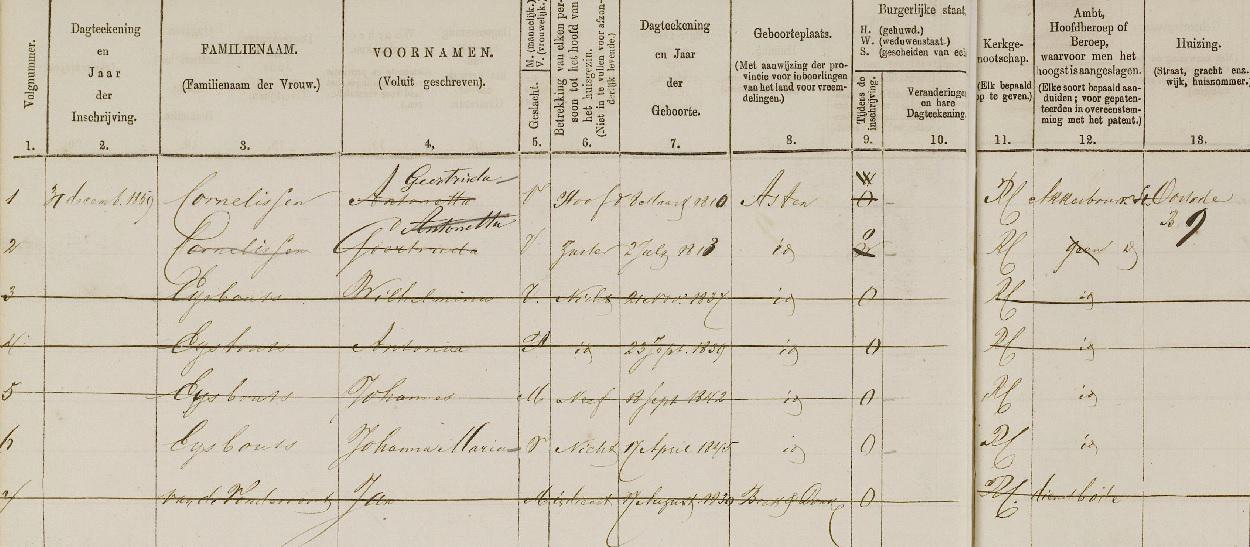 Volgnummer.
Dagteekening
en
Jaar
der
Inschrijving.
FAMILIENAAM.
(Familienaam der Vrouw.)
VOORNAMEN.
(Voluit geschreven).
Geslacht. M. (mannelijk.) V. (vrouwelijk.)
Betrekking van elken per-
soon tot het hoofd van
het huisgezin.
(Niet in te vullen voor afzon-
derlijk levende.)
Dagteekening
en Jaar
der
Geboorte.
Geboorteplaats.
(Met aanwijzing der pro-
vincie voor inboorlingen
van het land voor vreem-
delingen.)
Burgerlijke staat,
H. (gehuwd.)
W. (weduwenstaat.)
S. (gescheiden van ech
Tijdens de
inschrijving.
Veranderingen
en hare
Dagteekening.
Kerkge-
nootschap.
(Elk bepaald
op te geven.)
Ambt,
Hoofdberoep of
Beroep,
waarvoor men het
hoogst is aangeslagen.
(Elke soort bepaald aan-
duiden; voor gepaten-
teerden in overeenstem-
ming met het patent.)
Huizing.
(Straat, gracht enz.
wijk, huisnommer.)
1. 2. 3. 4. 5. 6. 7. 8. 9. 10. 11. 12. 13.
Geertruda
1 31 decemb. 1859 Cornelissen Antonetta V Hoofd 1810 Asten O RC Akkerbouwster Ostade
B 9
Antonetta
2 Cornelissen Geertruda V Zuster 2 July 1813 id O RC geen id
3 Eysbouts Wilhelmina V. Nicht 1837 id O RC id
4 Eysbouts Antonia V id 23 Sept. 1839 id O RC id
5 Eysbouts Johannes M Neef 18 Sept 1842 id O RC id
6 Eysbouts Johanna Maria V Nicht 17 April 1845 id O RC id
7 van de Jan M 17 August 1830 Beek & Donk O RC dienstbode